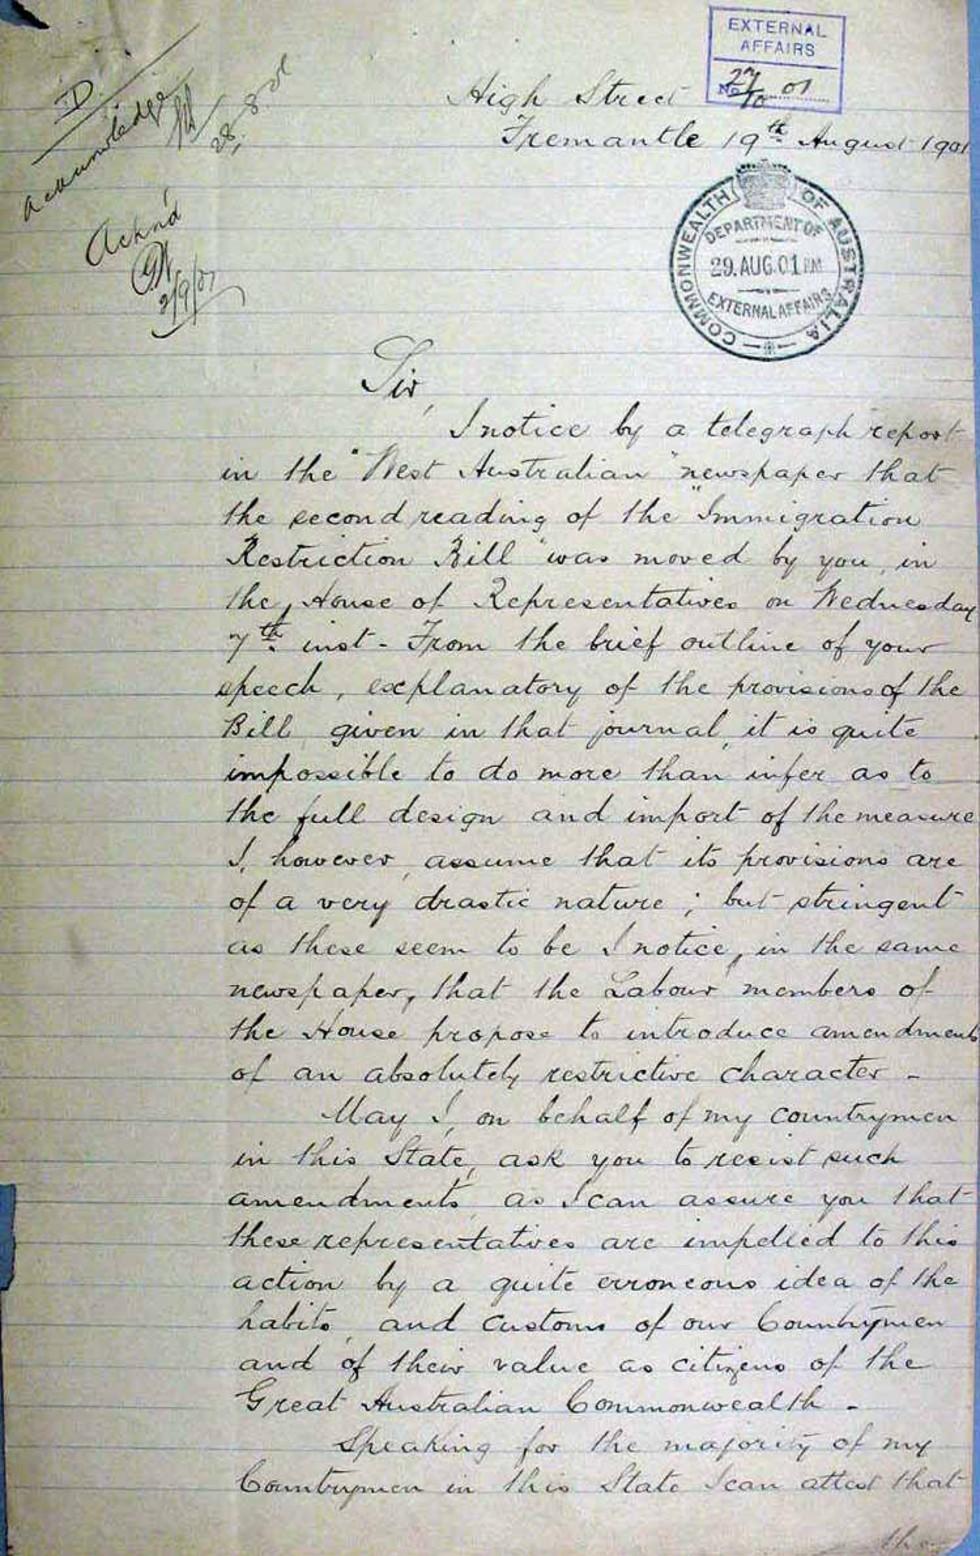 EXTERNAL
AFFAIRS
No 27/10 01
D
Acknowledge
28.8.01
Acknd
2/9/01
High Street
Fremantle 19th August 1901
COMMONWEALTH OF AUSTRALIA
DEPARTMENT OF
29.AUG.01 PM
EXTERNAL AFFAIRS
Sir,
I notice by a telegraph report
in the "West Australian" newspaper that
the second reading of the "Immigration
Restriction Bill" was moved by you, in
the, House of Representatives on Wednesday
7th inst - From the brief outline of your
speech, explanatory of the provisions of the
Bill, given in that journal, it is quite
impossible to do more than infer as to
the full design and import of the measure
I, however, assume that its provisions are
of a very drastic nature; but stringent
as these seem to be I notice, in the same
newspaper, that the Labour members of
the House propose to introduce amendments
of an absolutely restrictive character -
May I, on behalf of my countrymen
in this State, ask you to resist such
amendments, as I can assure you that
these representatives are impelled to this
action by a quite erroneous idea of the
habits, and customs of our Countrymen
and of their value as citizens of the
Great Australian Commonwealth -
Speaking for the majority of my
Countrymen in this State I can attest that
the